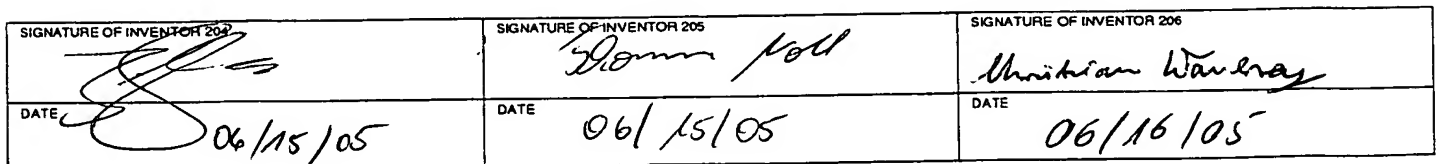 SIGNATURE OF INVENTOR 204
SIGNATURE OF INVENTOR 205
SIGNATURE OF INVENTOR 206
Christian
DATE
06/15/05
DATE
06/15/05
DATE
06/16/05